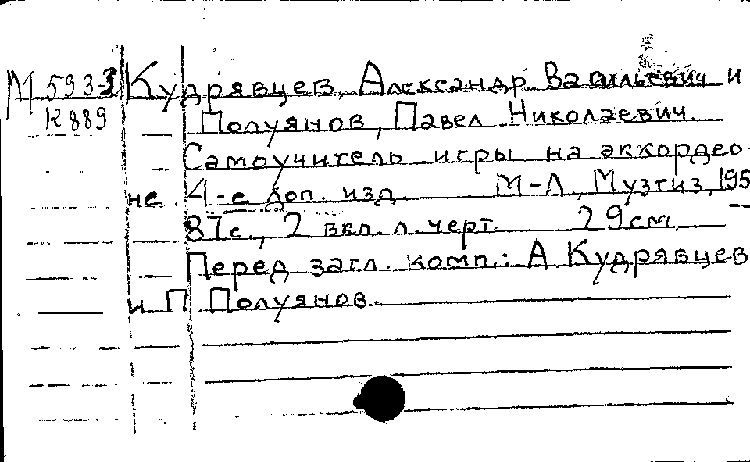 М 5933 Кудрявцев, Александр Васильевич и
К889 Полуянов, Павел Николаевич.
Самоучитель игры на аккордео-
не. 4-е доп. изд. М-Л, Музгиз, 195
87с., 2 вкл. л. черт. 29см.
Перед загл. комп.: А Кудрявцев
и П Полуянов.